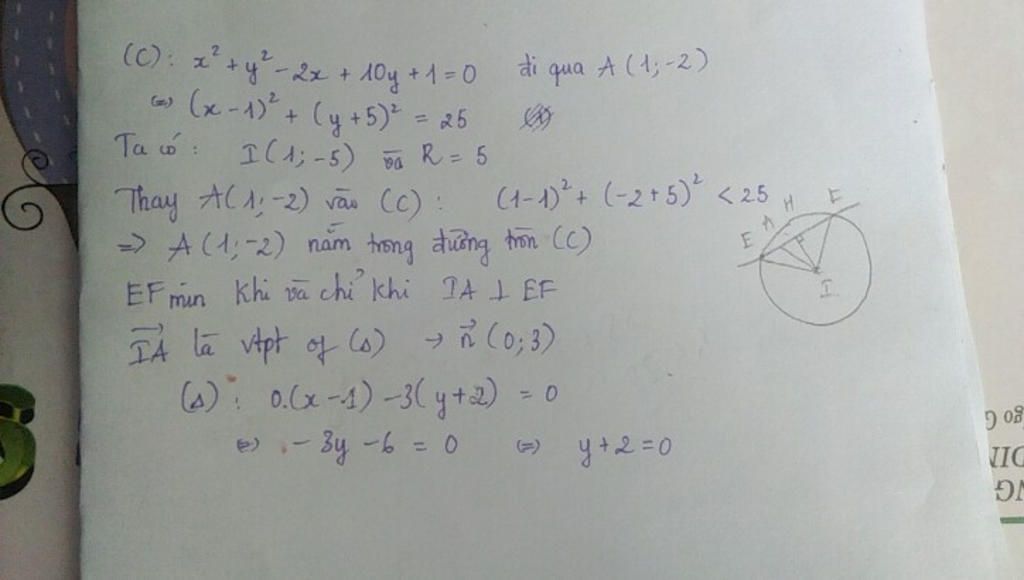 (C): x² + y² - 2x + 10y + 1 = 0 đi qua A(1; -2)
⇔ (x - 1)² + (y + 5)² = 25
Ta có: I(1; -5) và R = 5
Thay A(1; -2) vào (C): (1-1)² + (-2+5)² < 25
⇒ A(1; -2) nằm trong đường tròn (C)
EF min khi và chỉ khi IA ⊥ EF
→IA là vtpt of (Δ) → →n (0; 3)
(Δ): 0.(x - 1) - 3(y + 2) = 0
⇔ - 3y - 6 = 0 ⇔ y + 2 = 0
E A H F
I
go G
DIN
NG